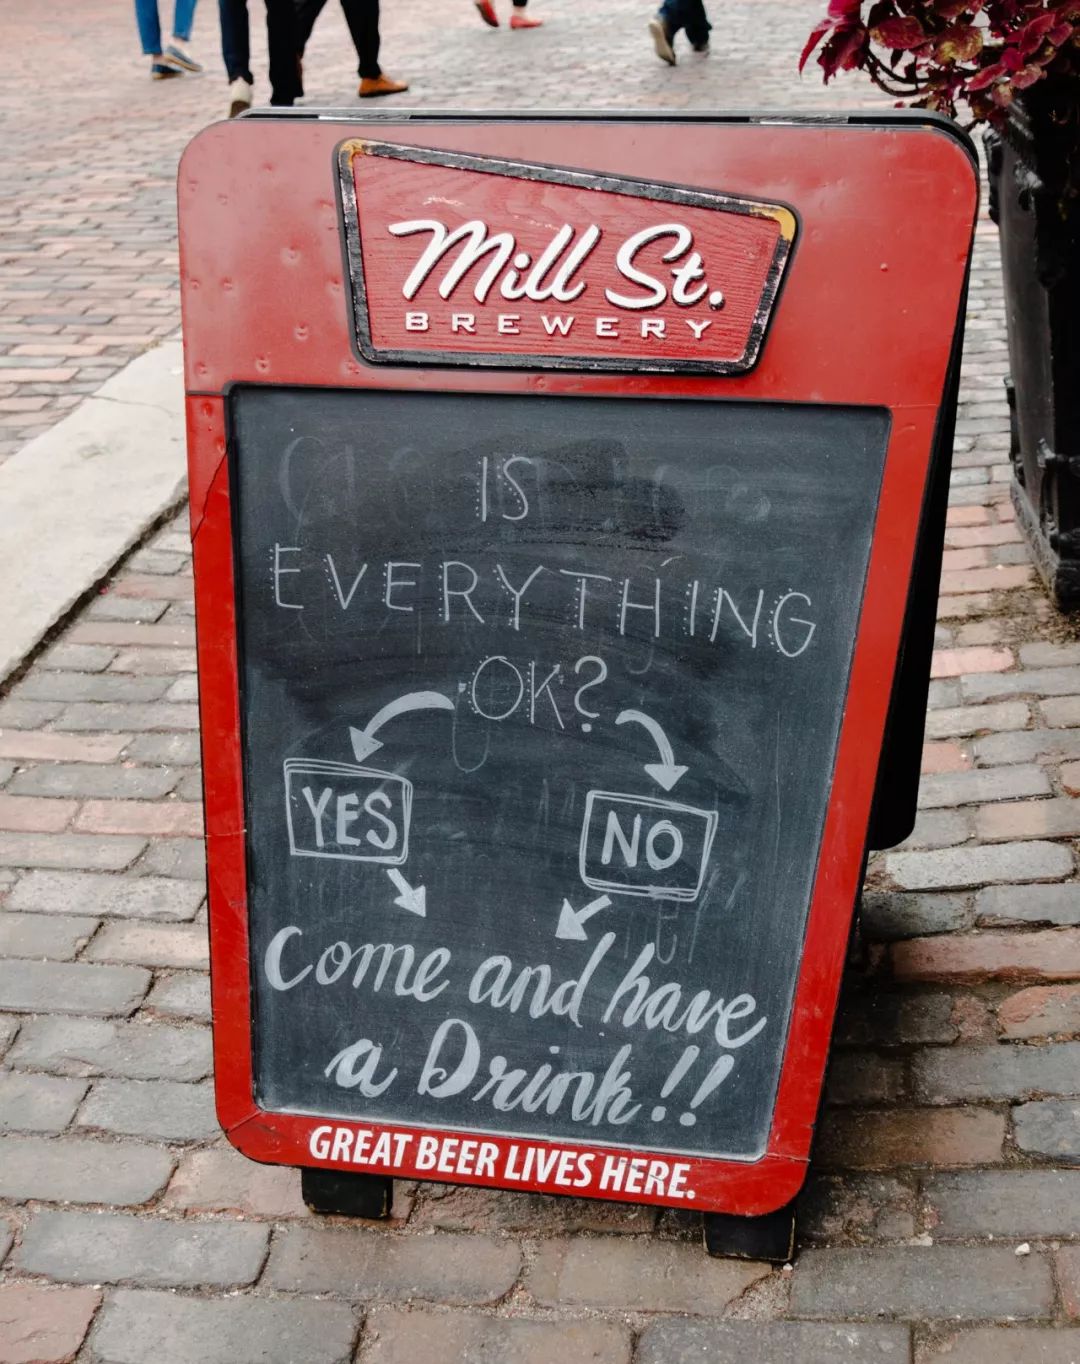 Mill St.
BREWERY
IS
EVERYTHING
OK?
YES
NO
Come and have
a Drink!!
GREAT BEER LIVES HERE.